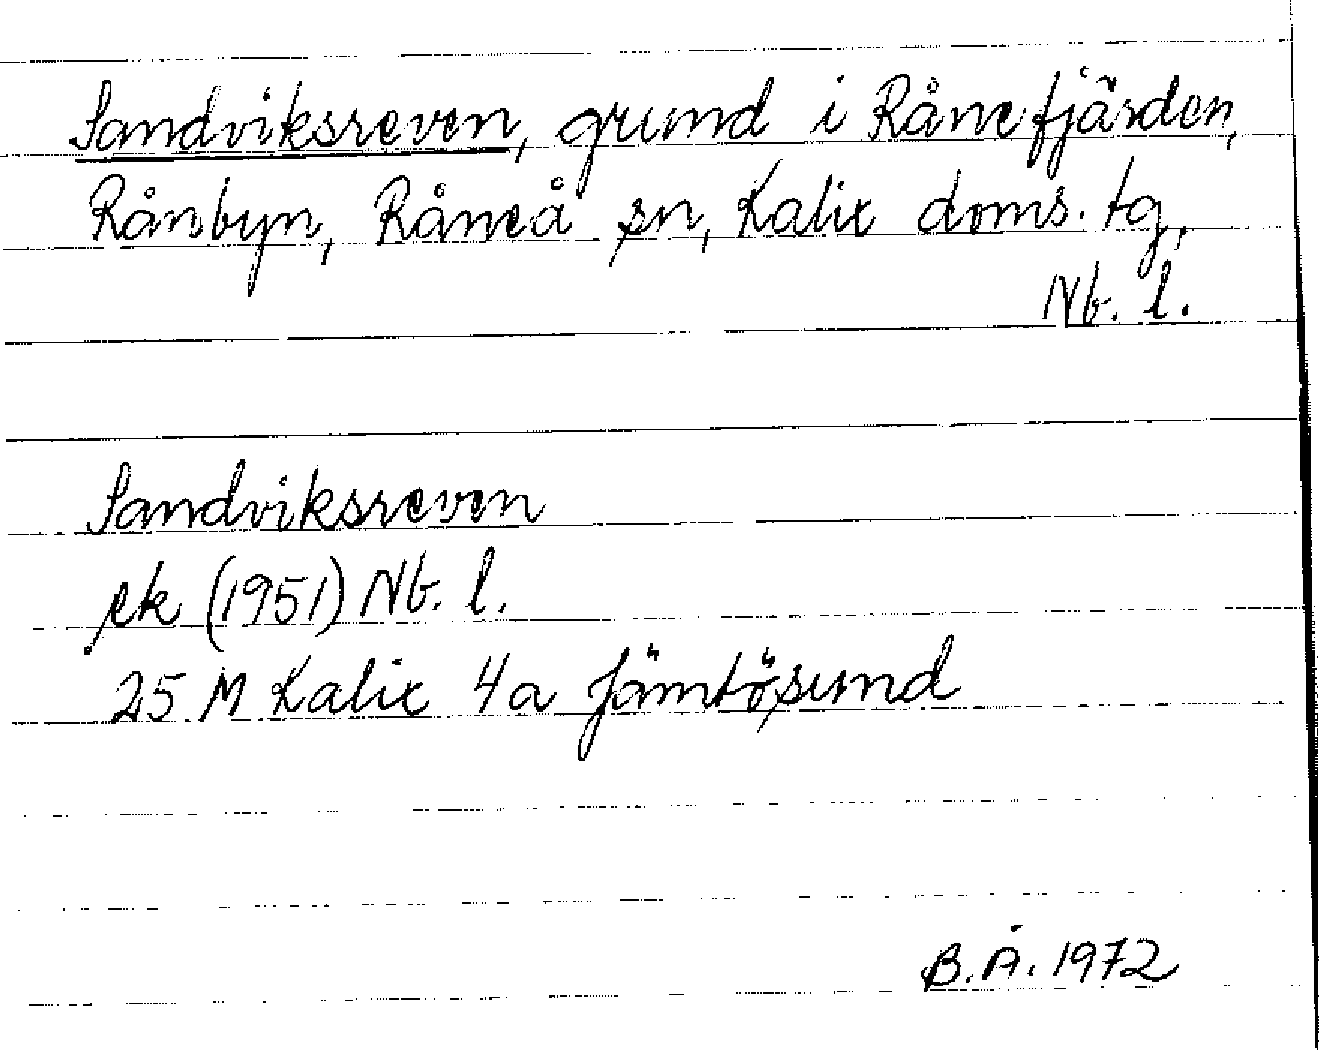 Sandviksreven, grund i Rånefjärden,
Rånbyn, Råneå sn, Kalix doms. tg.
Nb. l.
Sandviksreven
ek (1951) Nb. l.
25 M Kalix 4a Jämtösund
B. Å. 1972